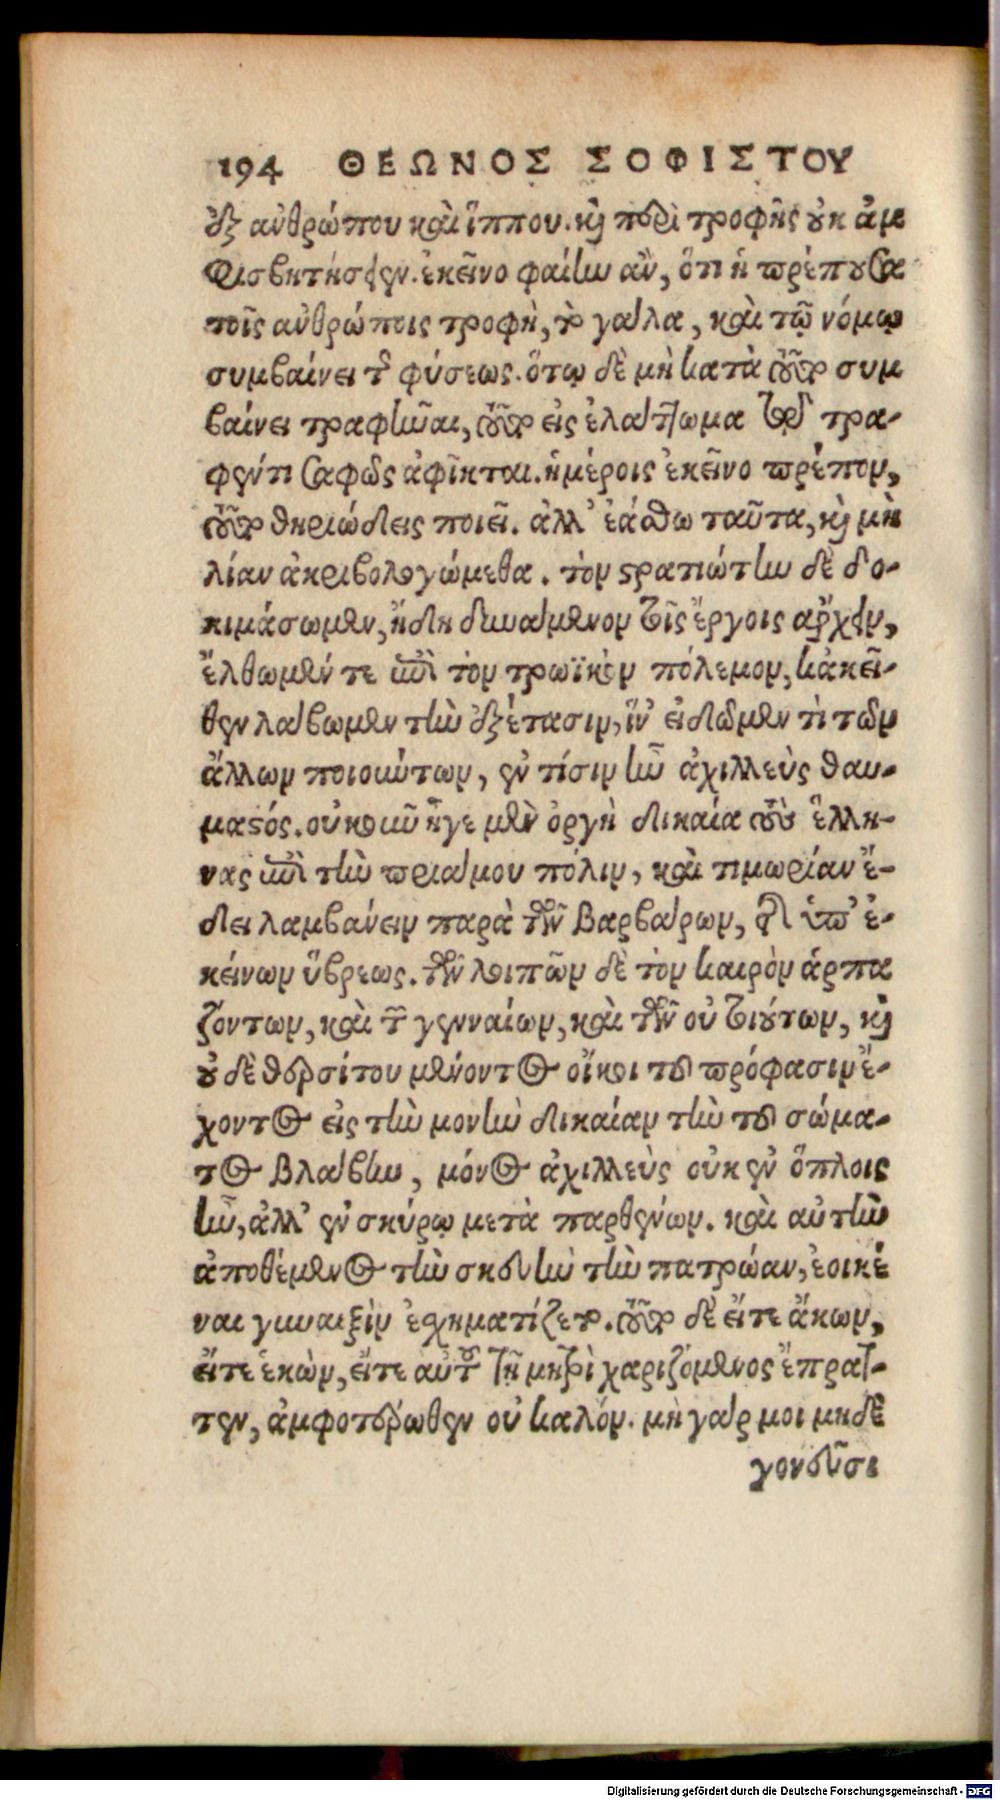 194 ΘΕΩΝΟΣ ΣΟΦΙΣΤΟΥ
ἐξ ἀνθρώπου καὶ ἵππου. καὶ περὶ τροφῆς οὐκ ἀμ
φισβητήσειν. ἐκεῖνο φαίην ἂν, ὅτι ἡ πρέπουσα
τοῖς ἀνθρώποις τροφὴ, τὸ γάλα, καὶ τῷ νόμῳ
συμβαίνει τῆς φύσεως. ὅτῳ δὲ μὴ κατὰ τοῦτο συμ
βαίνει τραφῆναι, τοῦτο εἰς ἐλάττωμα τοῦ τρα-
φέντι σαφῶς ἀφῖκται. ἡμέροις ἐκεῖνο πρέπον,
τοῦτο θηριώδεις ποιεῖ. ἀλλ' ἐάσθω ταῦτα, καὶ μὴ
λίαν ἀκριβολογώμεθα. τὸν στρατιώτην δὲ δο-
κιμάσωμεν, ἤδη δυνάμενον τοῖς ἔργοις ἄρχειν,
ἔλθωμέν τε ἐπὶ τὸν τρωϊκὸν πόλεμον, κἀκεῖ-
θεν λάβωμεν τὴν ἐξέτασιν, ἵν' εἰδῶμεν τὶ τῶν
ἄλλων ποιούντων, ἐν τίσιν ἦν ἀχιλλεὺς θαυ-
μαστός. οὐκοῦν ἦγε μὲν ὀργὴ δικαία τοὺς ἕλλη-
νας ἐπὶ τὴν πριάμου πόλιν, καὶ τιμωρίαν ἔ-
δει λαμβάνειν παρὰ τῶν βαρβάρων, τῆς ὑπ' ἐ-
κείνων ὕβρεως. τῶν λοιπῶν δὲ τὸν καιρὸν ἁρπα
ζόντων, καὶ τῶν γενναίων, καὶ τῶν οὐ τοιούτων, καὶ
οὐδὲ θερσίτου μένοντος οἴκοι τοῦ πρόφασιν ἔ-
χοντος εἰς τὴν μονὴν δικαίαν τὴν τοῦ σώμα-
τος βλάβην, μόνος ἀχιλλεὺς οὐκ ἐν ὅπλοις
ἦν, ἀλλ' ἐν σκύρῳ μετὰ παρθένων. καὶ αὐτὴν
ἀποθέμενος τὴν σκευὴν τὴν πατρώαν, ἐοικέ
ναι γυναιξὶν ἐσχηματίζετο. τοῦτο δὲ εἴτε ἄκων,
εἴτε ἑκὼν, εἴτε αὐτοῦ τῇ μητρὶ χαριζόμενος ἔπρατ-
τεν, ἀμφοτέρωθεν οὐ καλόν. μὴ γάρ μοι μηδὲ
γονεῦσι
Digitalisierung gefördert durch die Deutsche Forschungsgemeinschaft - DFG